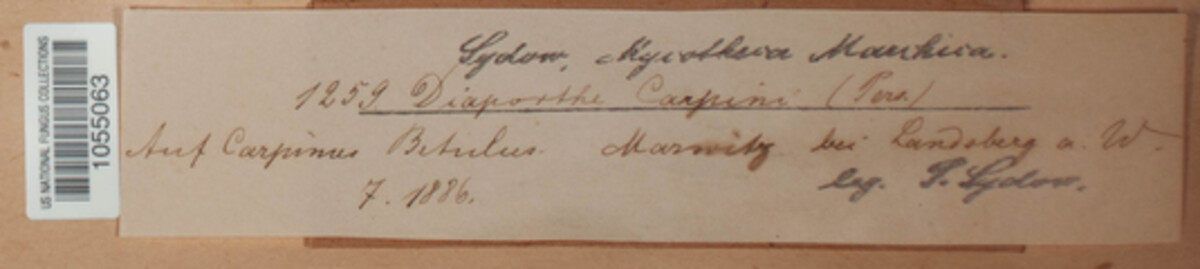 US NATIONAL FUNGUS COLLECTIONS
1055063
Sydow, Mycotheca Marchica.
1259 Diaporthe Carpini (Pers.)
Auf Carpinus Betulus. Marwitz bei Landsberg a. W.
7. 1886. leg. P. Sydow.